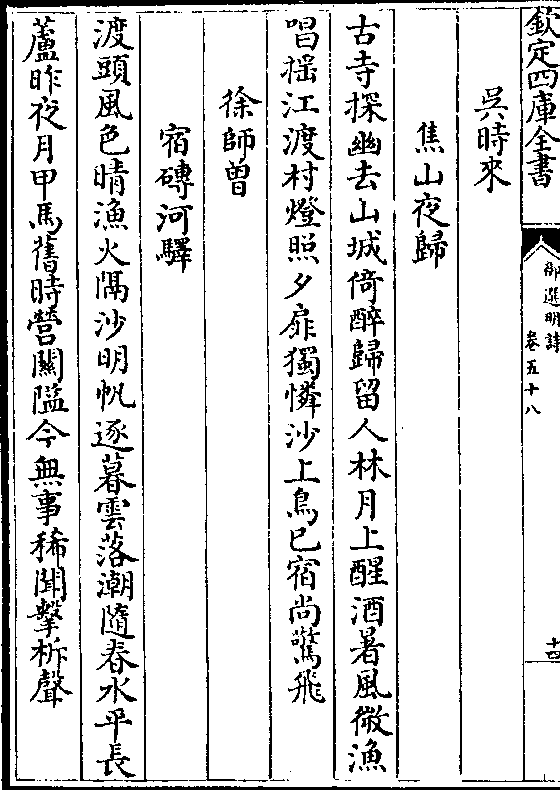 欽定四庫全書
御選明詩
卷五十八
十四
吳時來
焦山夜歸
古寺探幽去山城倚醉歸留人林月上醒酒暑風微漁
唱搖江渡村燈照夕扉獨憐沙上鳥已宿尚驚飛
徐師曾
宿磚河驛
渡頭風色晴漁火隔沙明帆逐暮雲落潮隨春水平長
蘆昨夜月甲馬舊時營關隘今無事稀聞擊柝聲